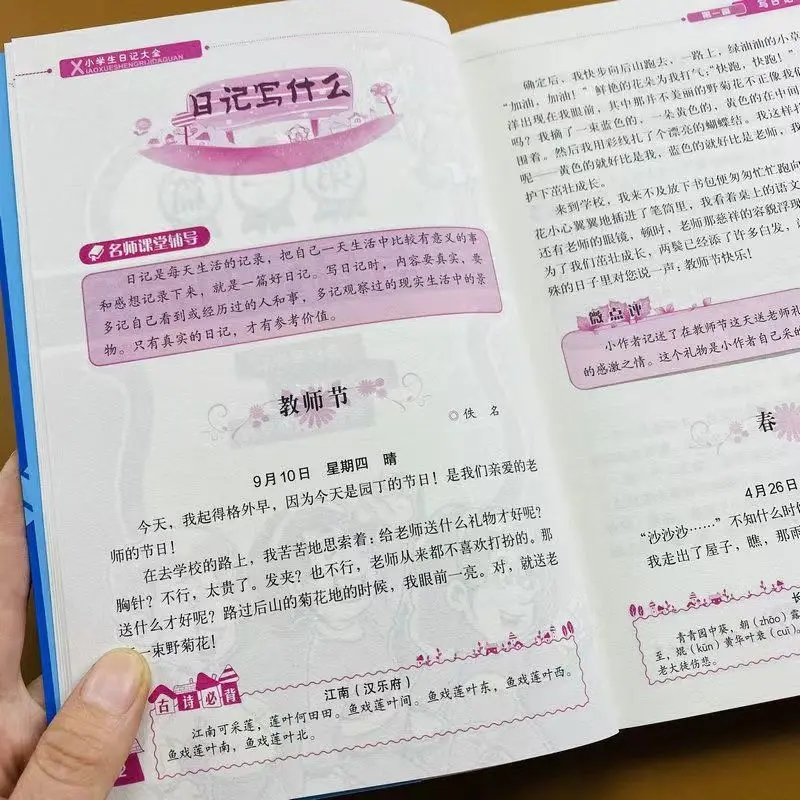 小学生日记大全
XIAOXUESHENGRIJIDAQUAN
日记写什么
名师课堂辅导
日记是每天生活的记录，把自己一天生活中比较有意义的事
和感想记录下来，就是一篇好日记。写日记时，内容要真实，要
多记自己看到或经历过的人和事，多记观察过的现实生活中的景
物。只有真实的日记，才有参考价值。
教师节
◎佚 名
9月10日 星期四 晴
今天，我起得格外早，因为今天是园丁的节日！是我们亲爱的老
师的节日！
在去学校的路上，我苦苦地思索着：给老师送什么礼物才好呢？
胸针？不行，太贵了。发夹？也不行，老师从来都不喜欢打扮的。那
送什么才好呢？路过后山的菊花地的时候，我眼前一亮。对，就送老
一束野菊花！
古诗必背
江南（汉乐府）
江南可采莲，莲叶何田田。鱼戏莲叶间。鱼戏莲叶东，鱼戏莲叶西。
鱼戏莲叶南，鱼戏莲叶北。
2
第一篇 写日记
确定后，我快步向后山跑去，一路上，绿油油的小草
“加油，加油！”鲜艳的花朵为我打气：“快跑，快跑！”
洋出现在我眼前，其中那并不美丽的野菊花不正像我们
吗？我摘了一束蓝色的，一朵黄色的，黄色的在中间
围着。然后我用彩线扎了个漂亮的蝴蝶结。我这样扌
呢——黄色的就好比是我，蓝色的就好比是老师，我
护下茁壮成长。
来到学校，我来不及放下书包便匆匆忙忙跑向
花小心翼翼地插进了笔筒里，我看着桌上的语文
还有老师的眼镜，顿时，老师那慈祥的容貌浮现
为了我们茁壮成长，两鬓已经添了许多白发，
殊的日子里对您说一声：教师节快乐！
微点评
小作者记述了在教师节这天送老师礼
的感激之情。这个礼物是小作者自己采的
春
4月26日
“沙沙沙……”不知什么时
我走出了屋子，瞧，那雨
长
青青园中葵，朝（zhāo）露
至，焜（kūn）黄华叶衰（cuī）
老大徒伤悲。